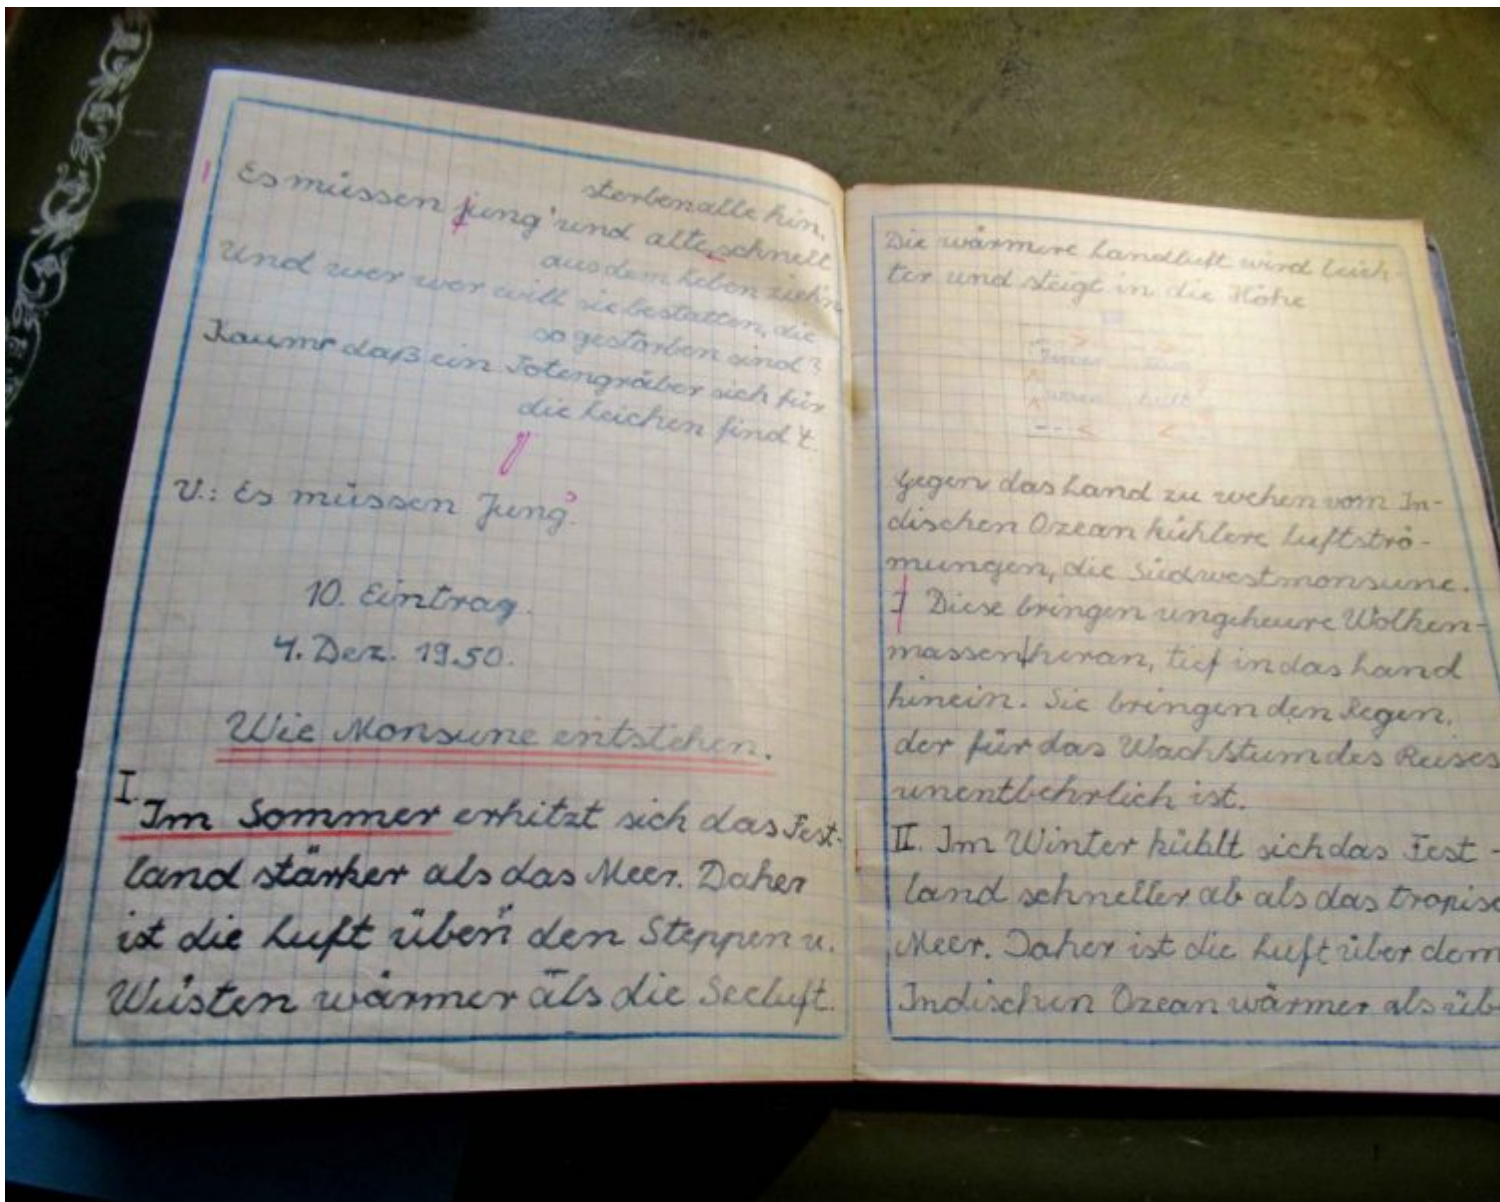 sterben alle hin.
Es müssen jung' und alte schnell
aus dem Leben ziehn
Und wer wer will sie bestatten, die
so gestorben sind?
Kaum daß ein Totengräber sich für
die Leichen find't
V.: Es müssen Jung'.
10. Eintrag.
4. Dez. 19.50.
Wie Monsune entstehen.
I. Im Sommer erhitzt sich das Fest-
land stärker als das Meer. Daher
ist die Luft über den Steppen u.
Wüsten wärmer als die Seeluft.
Die wärmere Landluft wird leich-
ter und steigt in die Höhe
Gegen das Land zu wehen vom In-
dischen Ozean kühlere Luftströ-
mungen, die Südwestmonsune.
Diese bringen ungeheure Wolken-
massen heran, tief in das Land
hinein. Sie bringen den Regen,
der für das Wachstum des Reises
unentbehrlich ist.
II. Im Winter kühlt sich das Fest-
land schneller ab als das tropisc
Meer. Daher ist die Luft über dem
Indischen Ozean wärmer als üb